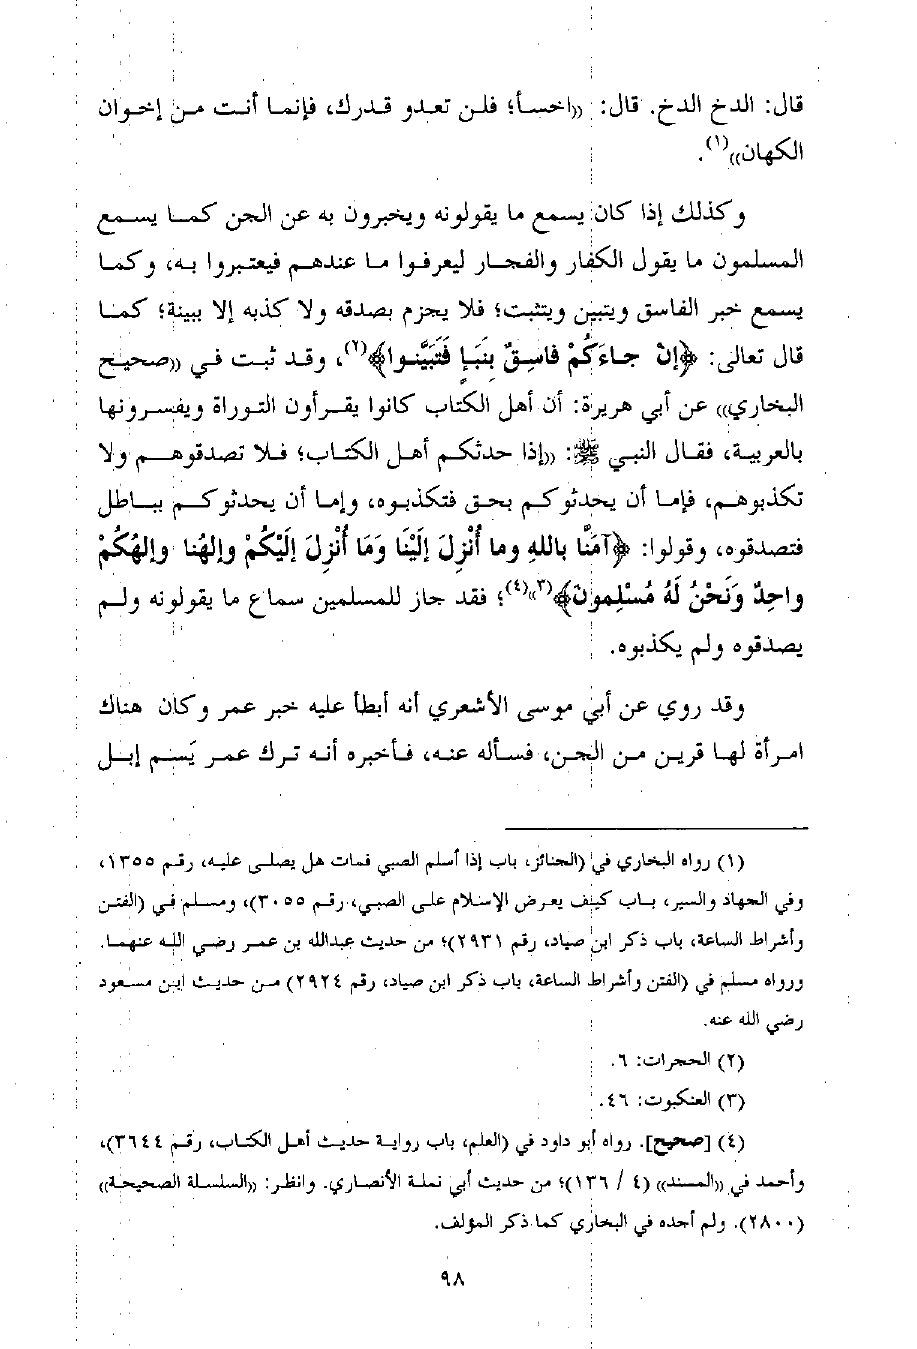 قال: الدخ الدخ. قال: «اخسأ؛ فلن تعدو قدرك، فإنما أنت من إخوان
الكهان»(١).
وكذلك إذا كان يسمع ما يقولونه ويخبرون به عن الجن كما يسمع
المسلمون ما يقول الكفار والفجار ليعرفوا ما عندهم فيعتبروا به، وكما
يسمع خبر الفاسق ويتبين ويتثبت؛ فلا يجزم بصدقه ولا كذبه إلا ببينة؛ كما
قال تعالى: ﴿إنْ جاءَكُمْ فاسِقٌ بِنَبَإٍ فَتَبَيَّنوا﴾(٢)، وقد ثبت في «صحيح
البخاري» عن أبي هريرة: أن أهل الكتاب كانوا يقرأون التوراة ويفسرونها
بالعربية، فقال النبي ﷺ: «إذا حدثكم أهل الكتاب؛ فلا تصدقوهم ولا
تكذبوهم، فإما أن يحدثوكم بحق فتكذبوه، وإما أن يحدثوكم بباطل
فتصدقوه، وقولوا: ﴿آمَنَّا باللهِ وما أُنْزِلَ إلَيْنَا وَمَا أُنْزِلَ إلَيْكُمْ وإلهُنا وإلهُكُمْ
واحِدٌ وَنَحْنُ لَهُ مُسْلِمونَ﴾(٣)»(٤)؛ فقد جاز للمسلمين سماع ما يقولونه ولم
يصدقوه ولم يكذبوه.
وقد روي عن أبي موسى الأشعري أنه أبطأ عليه خبر عمر وكان هناك
امرأة لها قرين من الجن، فسأله عنه، فأخبره أنه ترك عمر يَسم إبل
(١) رواه البخاري في (الجنائز، باب إذا أسلم الصبي فمات هل يصلى عليه، رقم ١٣٥٥،
وفي الجهاد والسير، باب كيف يعرض الإسلام على الصبي، رقم ٣٠٥٥)، ومسلم في (الفتن
وأشراط الساعة، باب ذكر ابن صياد، رقم ٢٩٣١)؛ من حديث عبدالله بن عمر رضي الله عنهما.
ورواه مسلم في (الفتن وأشراط الساعة، باب ذكر ابن صياد، رقم ٢٩٢٤) من حديث ابن مسعود
رضي الله عنه.
(٢) الحجرات: ٦.
(٣) العنكبوت: ٤٦.
(٤) [صحيح]. رواه أبو داود في (العلم، باب رواية حديث أهل الكتاب، رقم ٣٦٤٤)،
وأحمد في «المسند» (٤ / ١٣٦)؛ من حديث أبي نملة الأنصاري. وانظر: «السلسلة الصحيحة»
(٢٨٠٠). ولم أجده في البخاري كما ذكر المؤلف.
٩٨